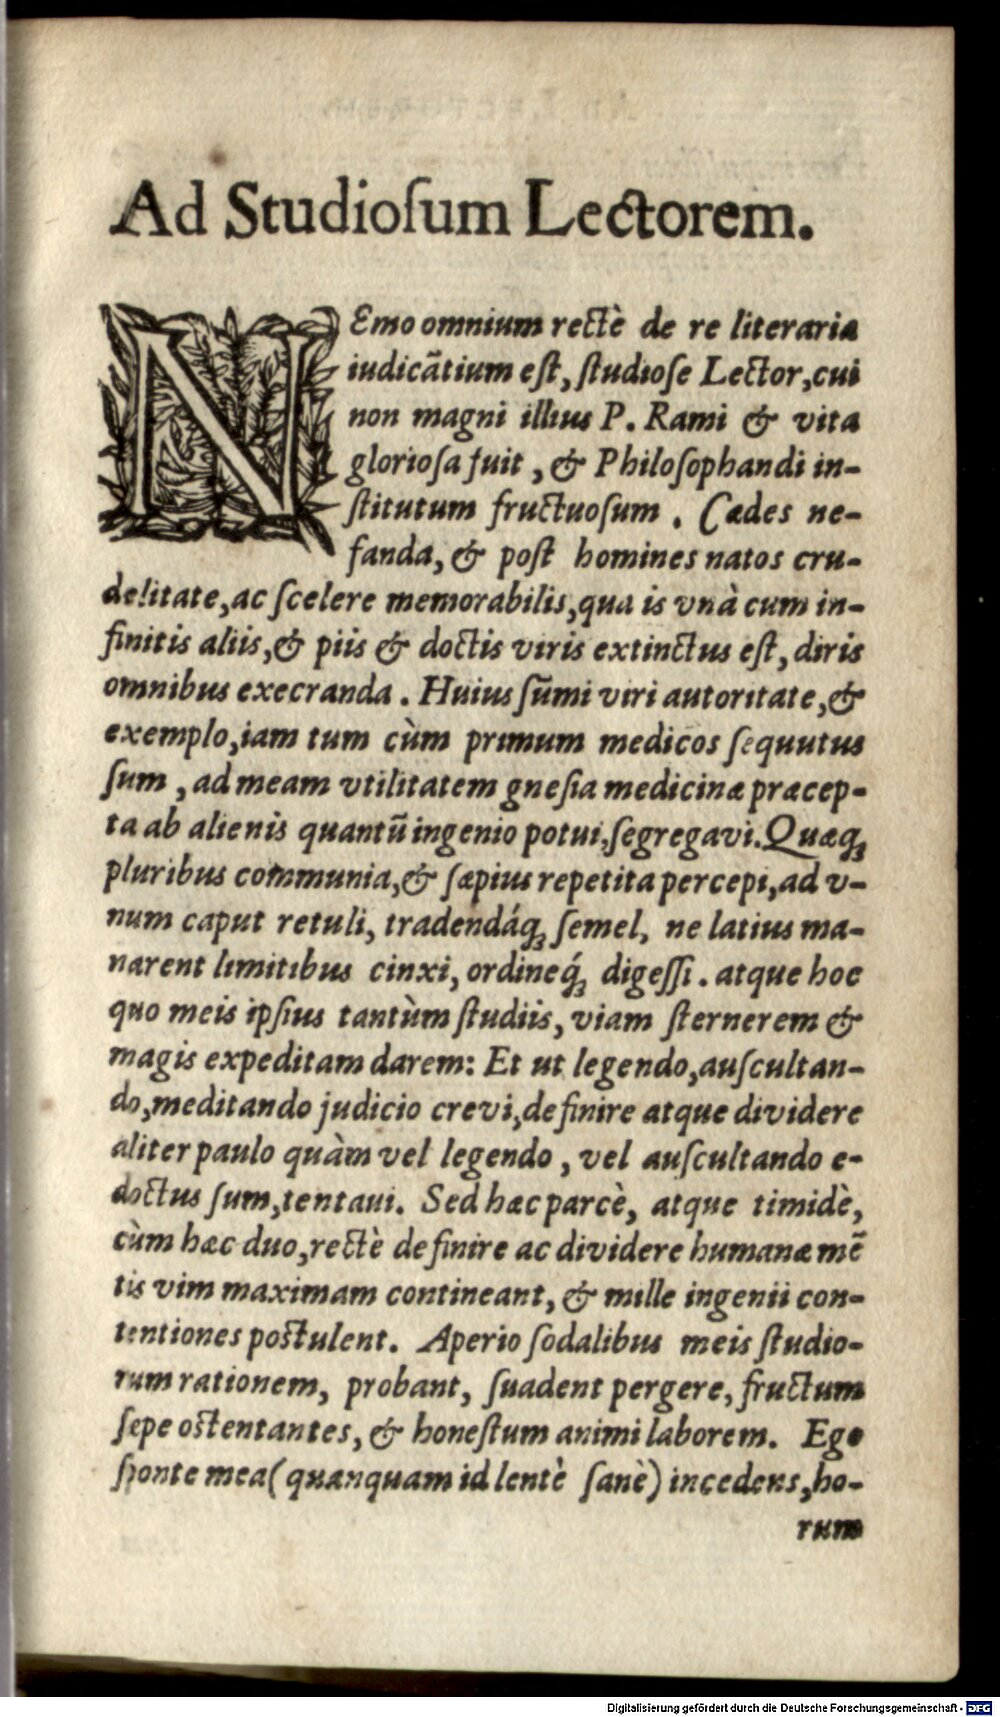 Ad Studioſum Lectorem.
NEmo omnium rectè de re literaria
iudicãtium eſt, ſtudioſe Lector, cui
non magni illius P. Rami & vita
glorioſa fuit, & Philoſophandi in-
ſtitutum fructuoſum. Cædes ne-
fanda, & poſt homines natos cru-
delitate, ac ſcelere memorabilis, qua is vnà cum in-
finitis aliis, & piis & doctis viris extinctus eſt, diris
omnibus execranda. Huius ſũmi viri autoritate, &
exemplo, iam tum cùm primum medicos ſequutus
ſum, ad meam vtilitatem gneſia medicinæ præcep-
ta ab alienis quantũ ingenio potui, ſegregavi. Quæq́;
pluribus communia, & ſæpius repetita percepi, ad v-
num caput retuli, tradendáq; ſemel, ne latius ma-
narent limitibus cinxi, ordineq́; digeſſi. atque hoc
quo meis ipſius tantùm ſtudiis, viam ſternerem &
magis expeditam darem: Et ut legendo, auſcultan-
do, meditando judicio crevi, definire atque dividere
aliter paulo quàm vel legendo, vel auſcultando e-
doctus ſum, tentaui. Sed hæc parcè, atque timidè,
cùm hæc duo, rectè definire ac dividere humanæ mẽ
tis vim maximam contineant, & mille ingenii con-
tentiones poſtulent. Aperio ſodalibus meis ſtudio-
rum rationem, probant, ſuadent pergere, fructum
ſepe oſtentantes, & honeſtum animi laborem. Ego
ſponte mea (quanquam id lentè ſanè) incedens, ho-
rum
Digitalisierung gefördert durch die Deutsche Forschungsgemeinschaft - DFG